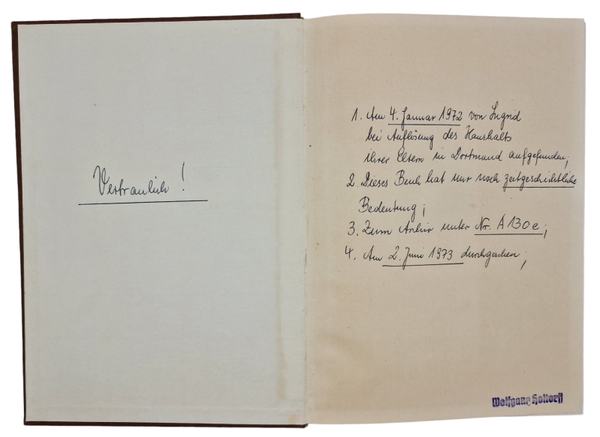 Vertraulich!
1. Am 4. Januar 1972 von Ingrid
bei Auflösung des Haushalts
ihrer Eltern in Dortmund aufgefunden;
2. Dieses Buch hat nur noch zeitgeschichtliche
Bedeutung;
3. Zum Archiv unter Nr. A 130 e;
4. Am 2. Juni 1973 durchgesehen;
Wolfgang